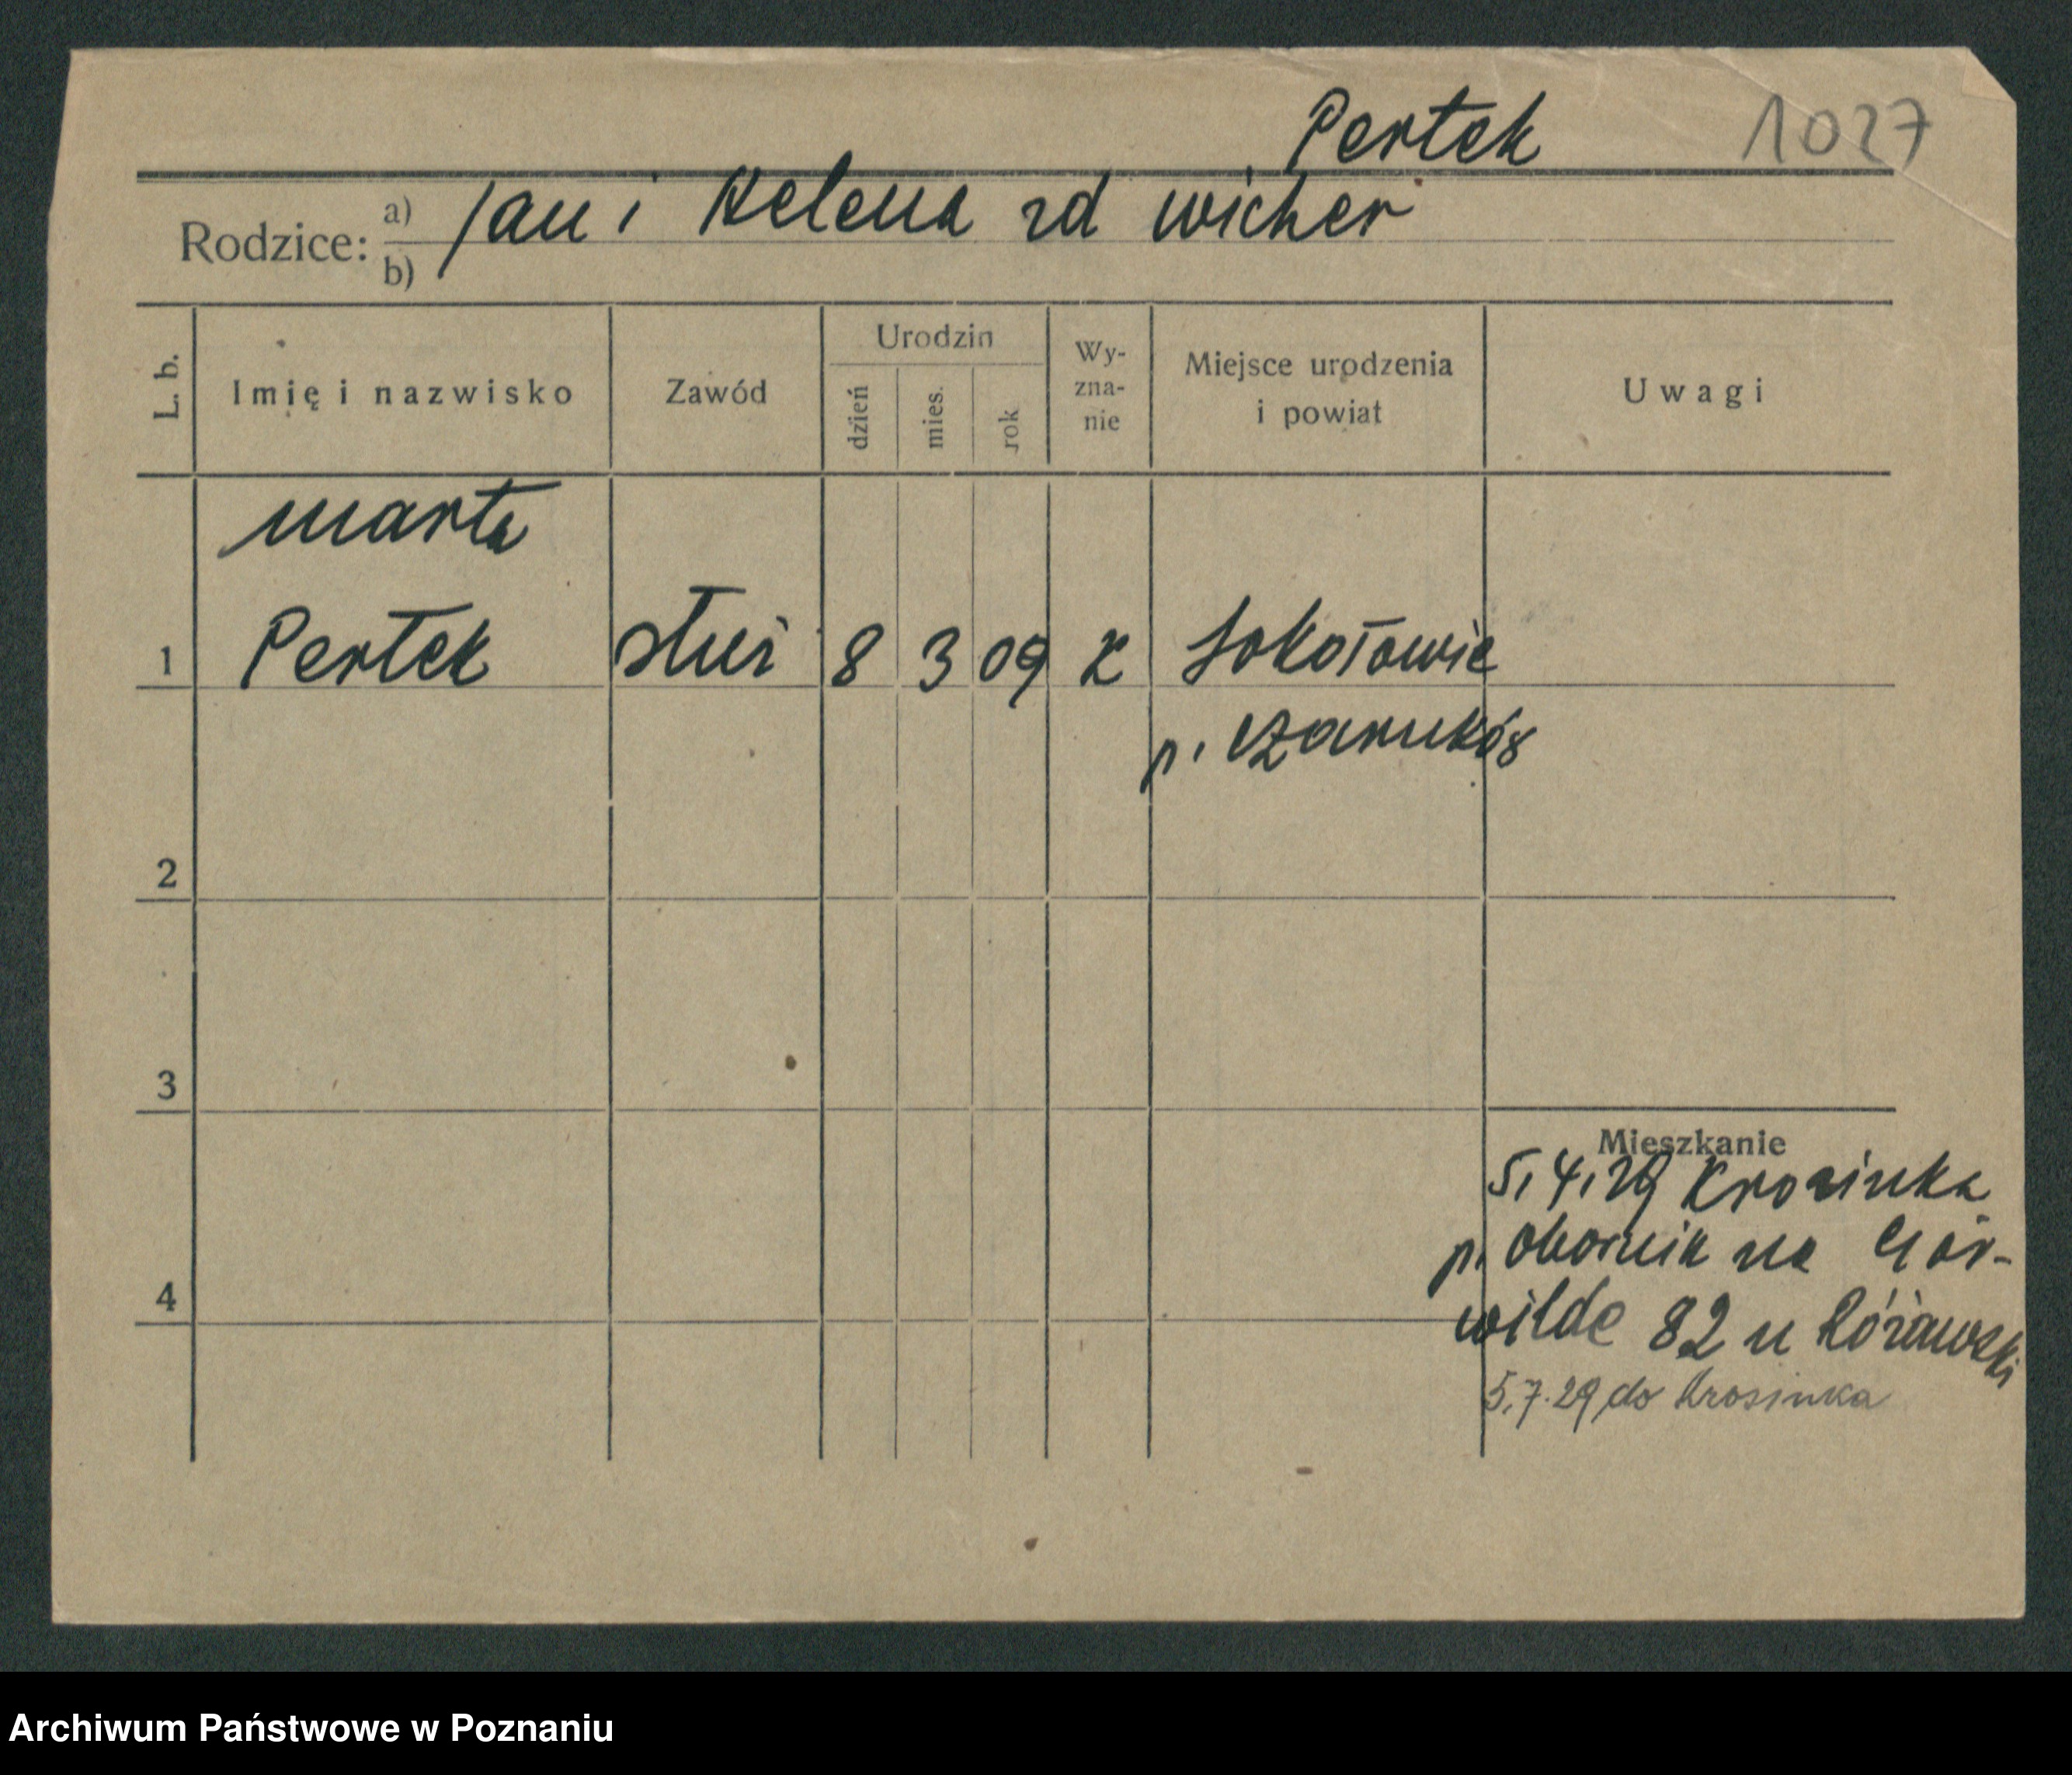 Pertek 1027
Rodzice: a) Jan i Helena zd Wicher
b)
L. b. Imię i nazwisko Zawód Urodzin dzień mies. rok Wy-zna-nie Miejsce urodzenia i powiat Uwagi
Marta
1 Pertek słuś 8 3 09 K Sokołowie
p. Czarnków
2
3
Mieszkanie
5.4.29 Krosinka
p. Obornik na Gór-
4
wilde 82 u Różawski
5.7.29 do Krosinka
Archiwum Państwowe w Poznaniu